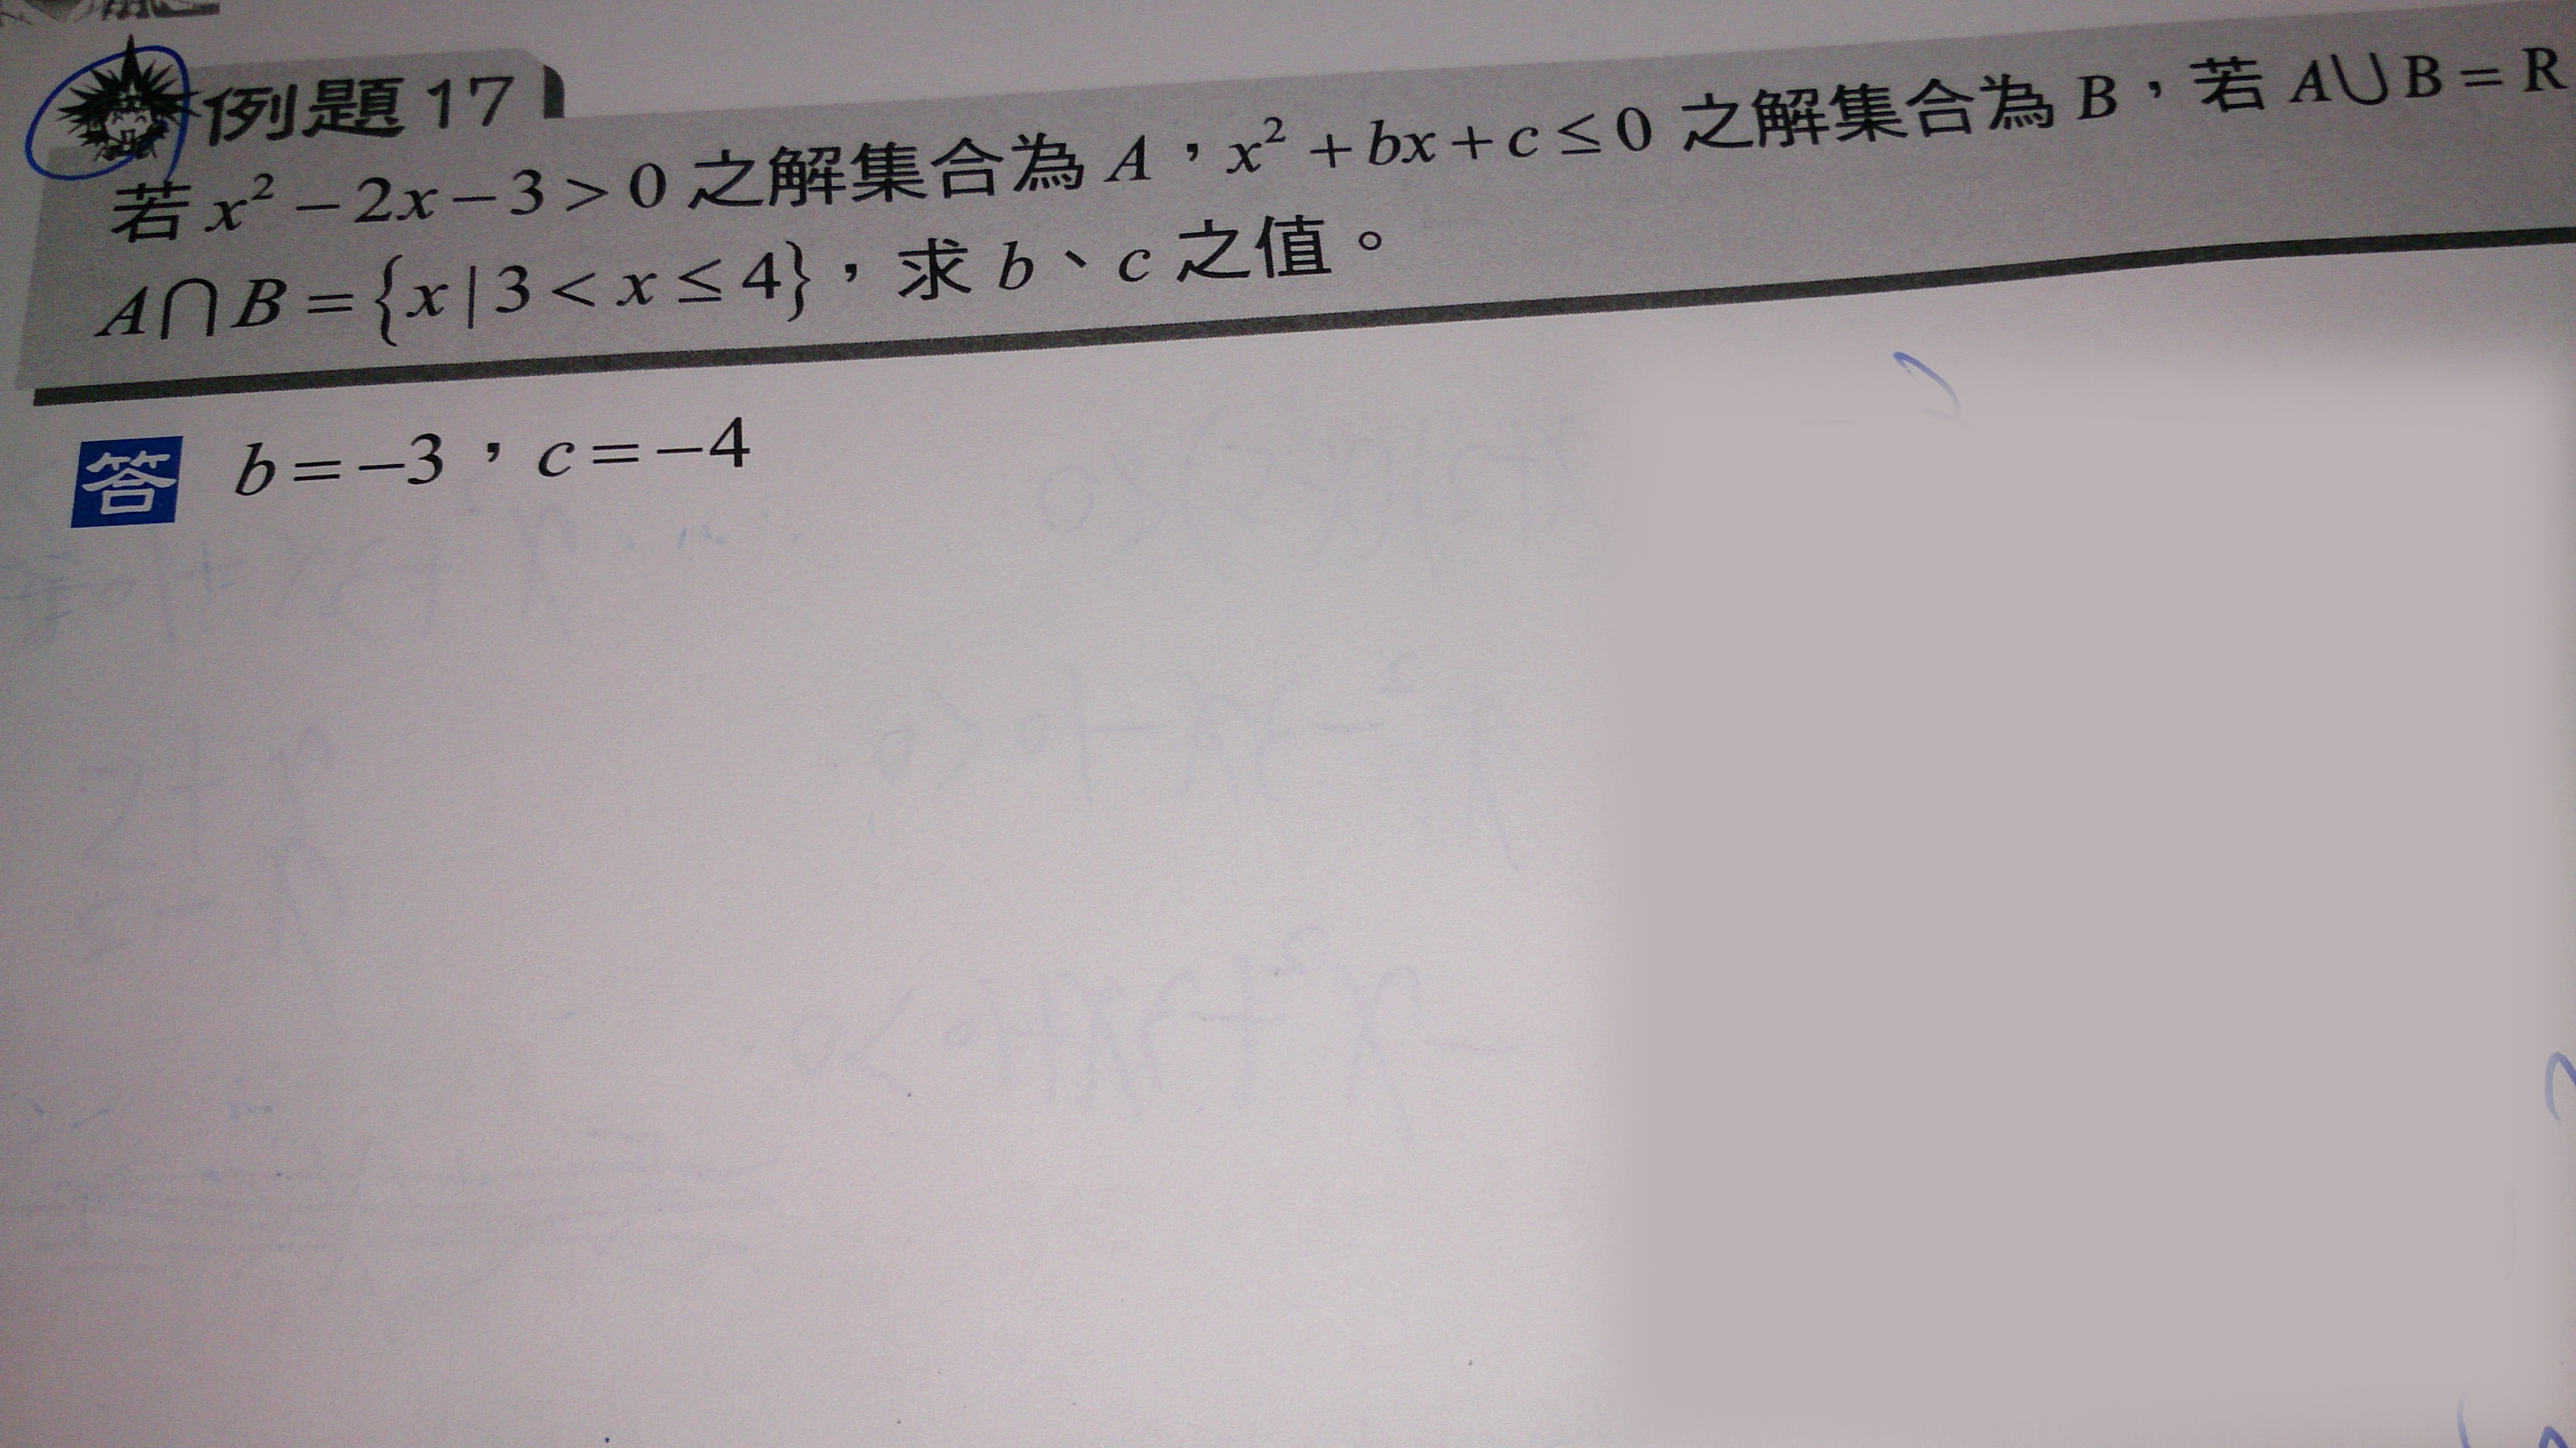 例題17
若 x² − 2x − 3 > 0 之解集合為 A，x² + bx + c ≤ 0 之解集合為 B，若 A∪B = R
A∩B = {x | 3 < x ≤ 4}，求 b、c 之值。
答 b = −3，c = −4